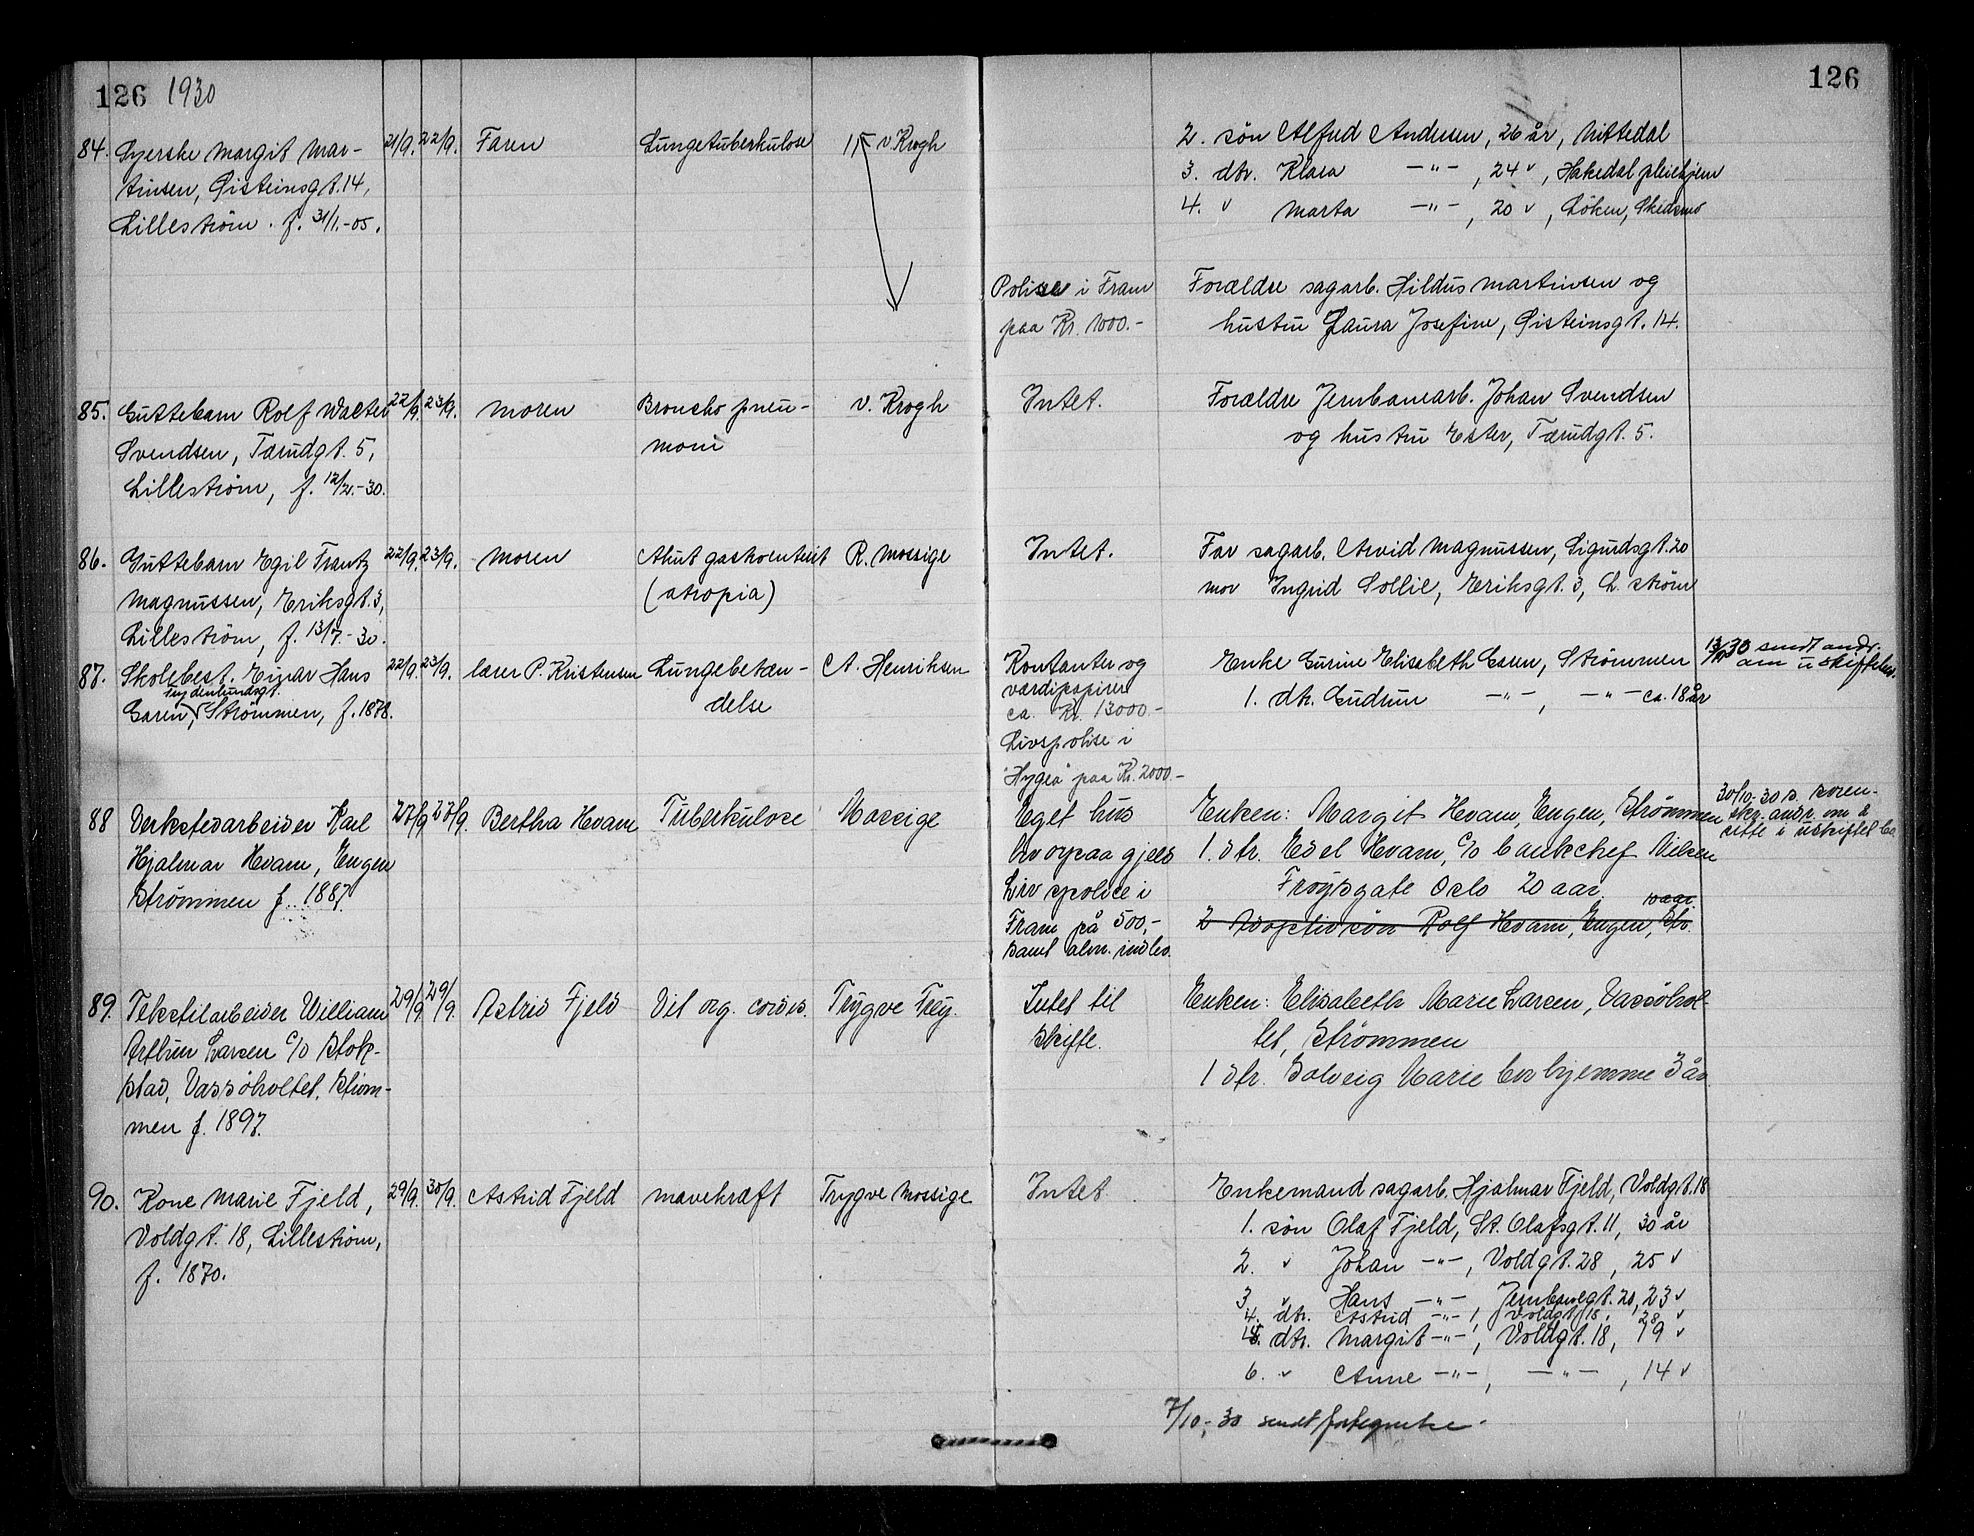 126 1930
84. Syerske Margit Mar-
tinsen, Øisteinsgt. 14,
Lillestrøm. f. 31/1.-05.
21/9. 22/9. Faren Lungetuberkulose v Krogh
85. Guttebarn Rolf Walter
Svendsen, Tærudgt. 5,
Lillestrøm, f. 12/2.-30.
22/9. 23/9. Moren Broncho pneu-
moni
v. Krogh
86. Guttebarn Egil Frantz
Magnussen, Eriksgt. 3,
Lillestrøm, f. 13/7.-30.
22/9. 23/9. Moren Akut gastroenterit
(atropia)
R. Mossige
87. Skolebest. Einar Hans
Garen, Strømmen, f. 1878.
22/9. 23/9. lærer P. Kristensen Lungebetæn-
delse
A. Henriksen
88 Verkstedarbeider Karl
Hjalmar Hvam, Engen
Strømmen f. 1887.
27/9 27/9. Bertha Hvam Tuberkulose Mossige
89. Tekstilarbeider William
Arthur Larsen c/o Stok-
stad, Vassøholtet, Strøm-
men f. 1897.
29/9 29/9. Astrid Fjeld Vit org. cordis. Trygve
90. Kone Marie Fjeld,
Voldgt. 18, Lillestrøm,
f. 1870.
29/9. 30/9. Astrid Fjeld mavekræft Trygve Mossige
126
2. søn Alfred Andersen, 26 år, Nittedal
3. dtr. Klara -"-, 24 v, Hakedal pleiehjem
4. v Marta -"-, 20 v, Løken, Skedsmo
Polise i Fram
paa Kr. 1000.-
Forældre sagarb. Hildus Martinsen og
hustru Laura Josefine, Øisteinsgt. 14.
Intet.
Forældre Jernbanearb. Johan Svendsen
og hustru Ester, Tærudgt. 5.
Intet.
Far sagarb. Arvid Magnussen, Sigurdsgt. 20
mor Ingrid Sollie, Eriksgt. 3, L. strøm
Kontanter og
værdipapirer
ca. Kr. 13000.-
Livspolise i
"Hygea" paa Kr. 2000.-
Enke Gurine Elisabeth Garen, Strømmen
1. dtr. Gudrun -"-, -"- ca. 18 år
30 sendt andr.
om uskiftebo.
Eget hus
hvorpaa gjeld
Livspolice i
Fram på 500,-
samt alm. indbo.
Enken: Margit Hvam, Engen, Strømmen
1. dtr. Edel Hvam, c/o bankchef Nielsen
Frøysgate Oslo 20 aar.
10 aar.
2 Adoptivsøn Rolf Hvam, Engen, Str.
30/10-30 s. soren-
skr. andr. om å
sitte i uskiftet bo
Intet til
skifte.
Enken: Elisabeth Marie Larsen, Vassøhol-
tet, Strømmen
1 dtr. Solveig Marie bor hjemme 3 år.
Intet
Enkemand sagarb. Hjalmar Fjeld, Voldgt. 18
1. søn Olaf Fjeld, St. Olafsgt. 11, 30 år
2. v Johan -"-, Voldgt. 28, 25 v
3 v Hans -"-, Jernbanegt. 20, 23 v
4. dtr. Astrid -"-, Voldgt. 18, 28 v
5. dtr. Margit -"-, Voldgt. 18, 19 v
6. v Anne -"-, -"-, 14 v
7/10.-30 sendt fortegnelse.